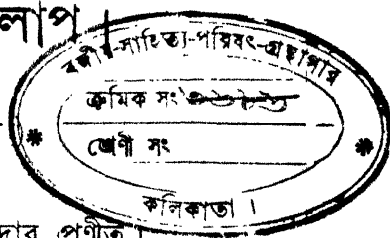 লাপ ।
বঙ্গীয়-সাহিত্য-পরিষৎ-গ্রন্থাগার
ক্রমিক সং
শ্রেণী সং
কলিকাতা ।
দার প্রণীত ।